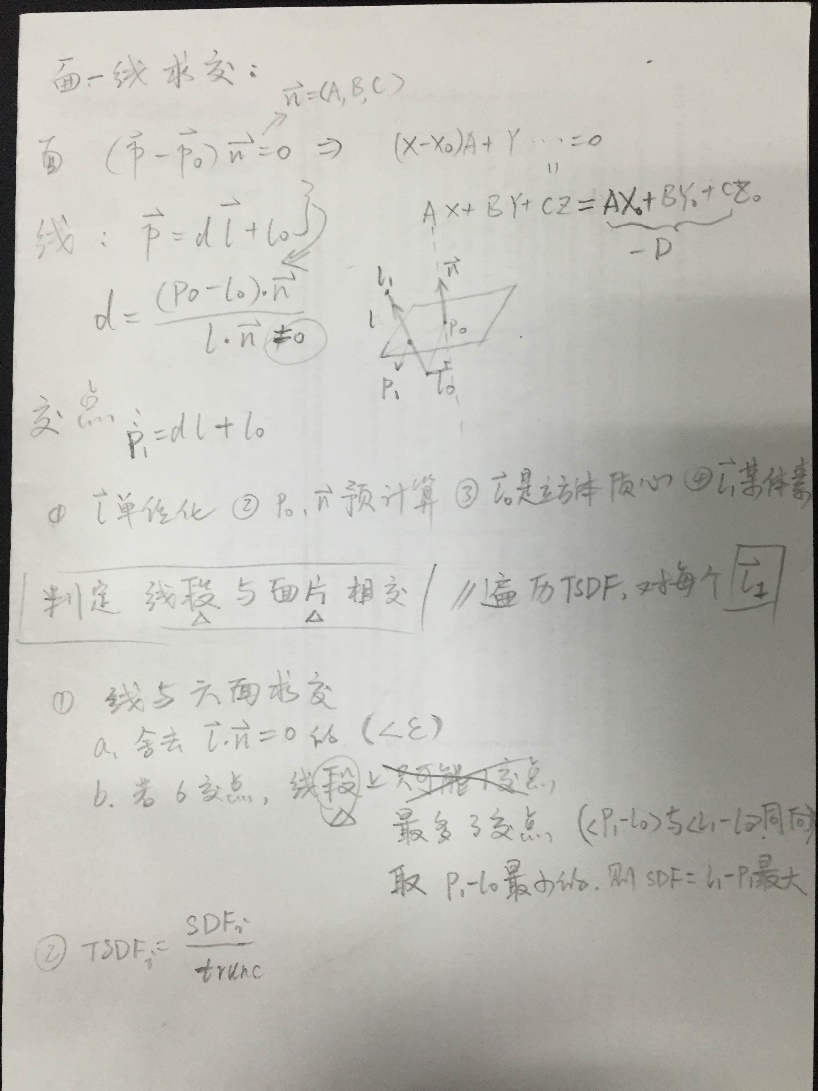 面-线求交:
n⃗=(A,B,C)
面 (p⃗-p⃗₀)n⃗=0 ⇒ (X-X₀)A+Y…=0
AX+BY+CZ=AX₀+BY₀+CZ₀
-D
线: p⃗=dl⃗+l₀
d=(p₀-l₀)·n⃗/l·n⃗≠0
l₁ n⃗
l p₀
p₁ l⃗₀
交点 p₁=dl+l₀
① l⃗单位化 ② p₀,n⃗预计算 ③ l⃗₀是立方体质心 ④ l⃗₁某体素
判定 线段与面片相交 //遍历TSDF,对每个 l⃗₁
① 线与六面求交
a. 舍去 l⃗·n⃗=0的 (<ε)
b. 若6交点, 线段上只可能1交点,
最多3交点, (<P₁-l₀>与<l₁-l₀>同向)
取 P₁-l₀最小的. 则SDF=l₁-P₁最大
② TSDFᵢ=SDFᵢ/trunc